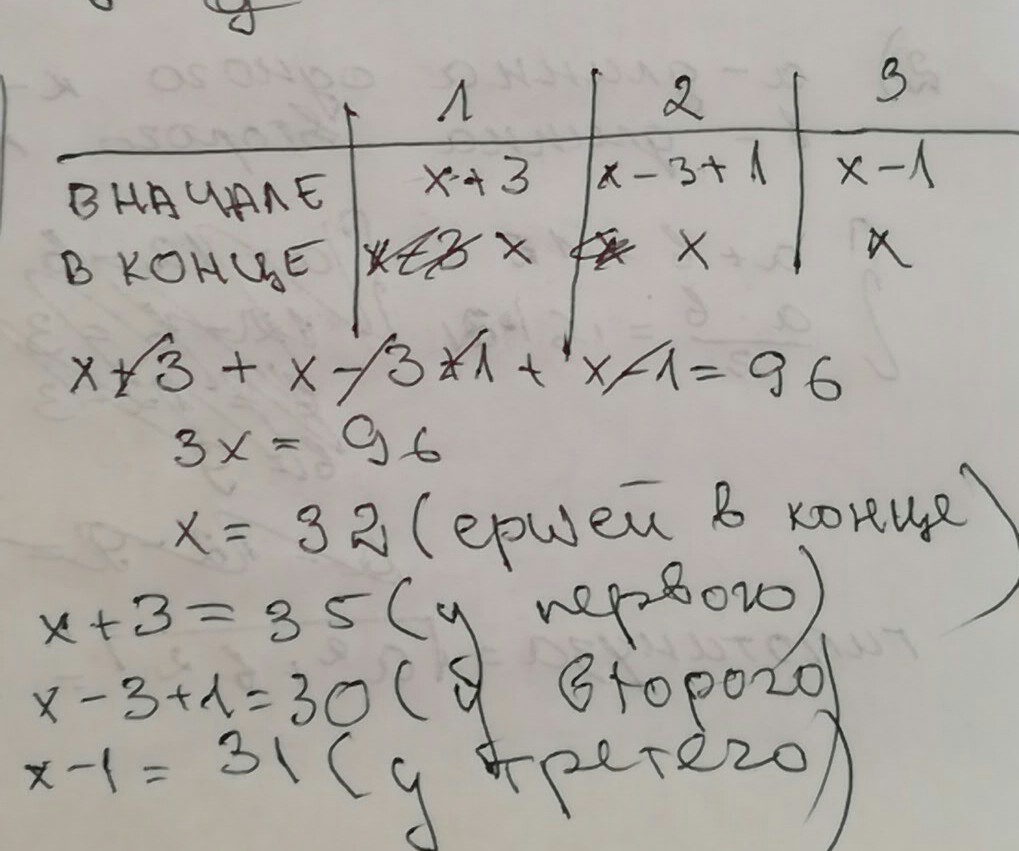 1 2 3
ВНАЧАЛЕ x+3 x-3+1 x-1
В КОНЦЕ x x x
x+3 + x-3+1 + x-1 = 96
3x = 96
x = 32 (ершей в конце)
x+3 = 35 (у первого)
x-3+1=30 (у второго)
x-1 = 31 (у третего)